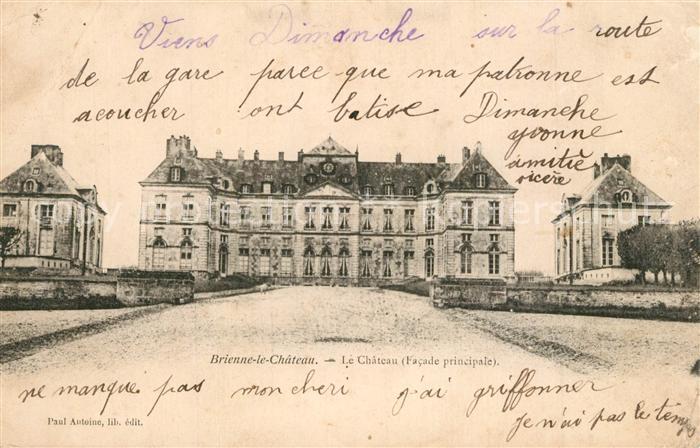 Viens Dimanche sur la route
de la gare parce que ma patronne est
acoucher ont batise Dimanche
yvonne
amitiè
sicère
Brienne-le-Château. — Le Château (Façade principale).
ne manque pas mon cheri j'ai griffonner
Je n'ai pas le temps
Paul Antoine, lib. édit.